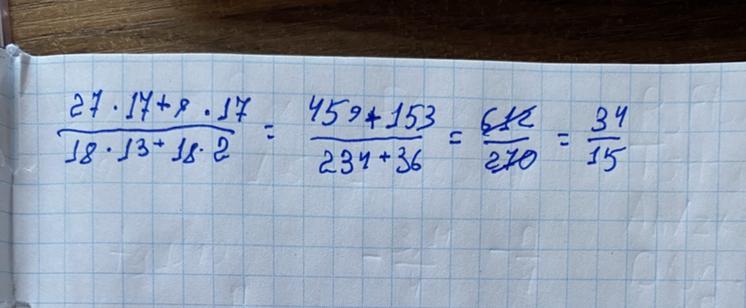 (27 · 17 + 9 · 17) / (18 · 13 + 18 · 2) = (459 + 153) / (234 + 36) = 612 / 270 = 34 / 15